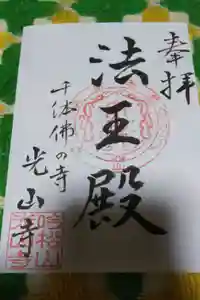 奉拝
法王殿
千体佛の寺
光山寺